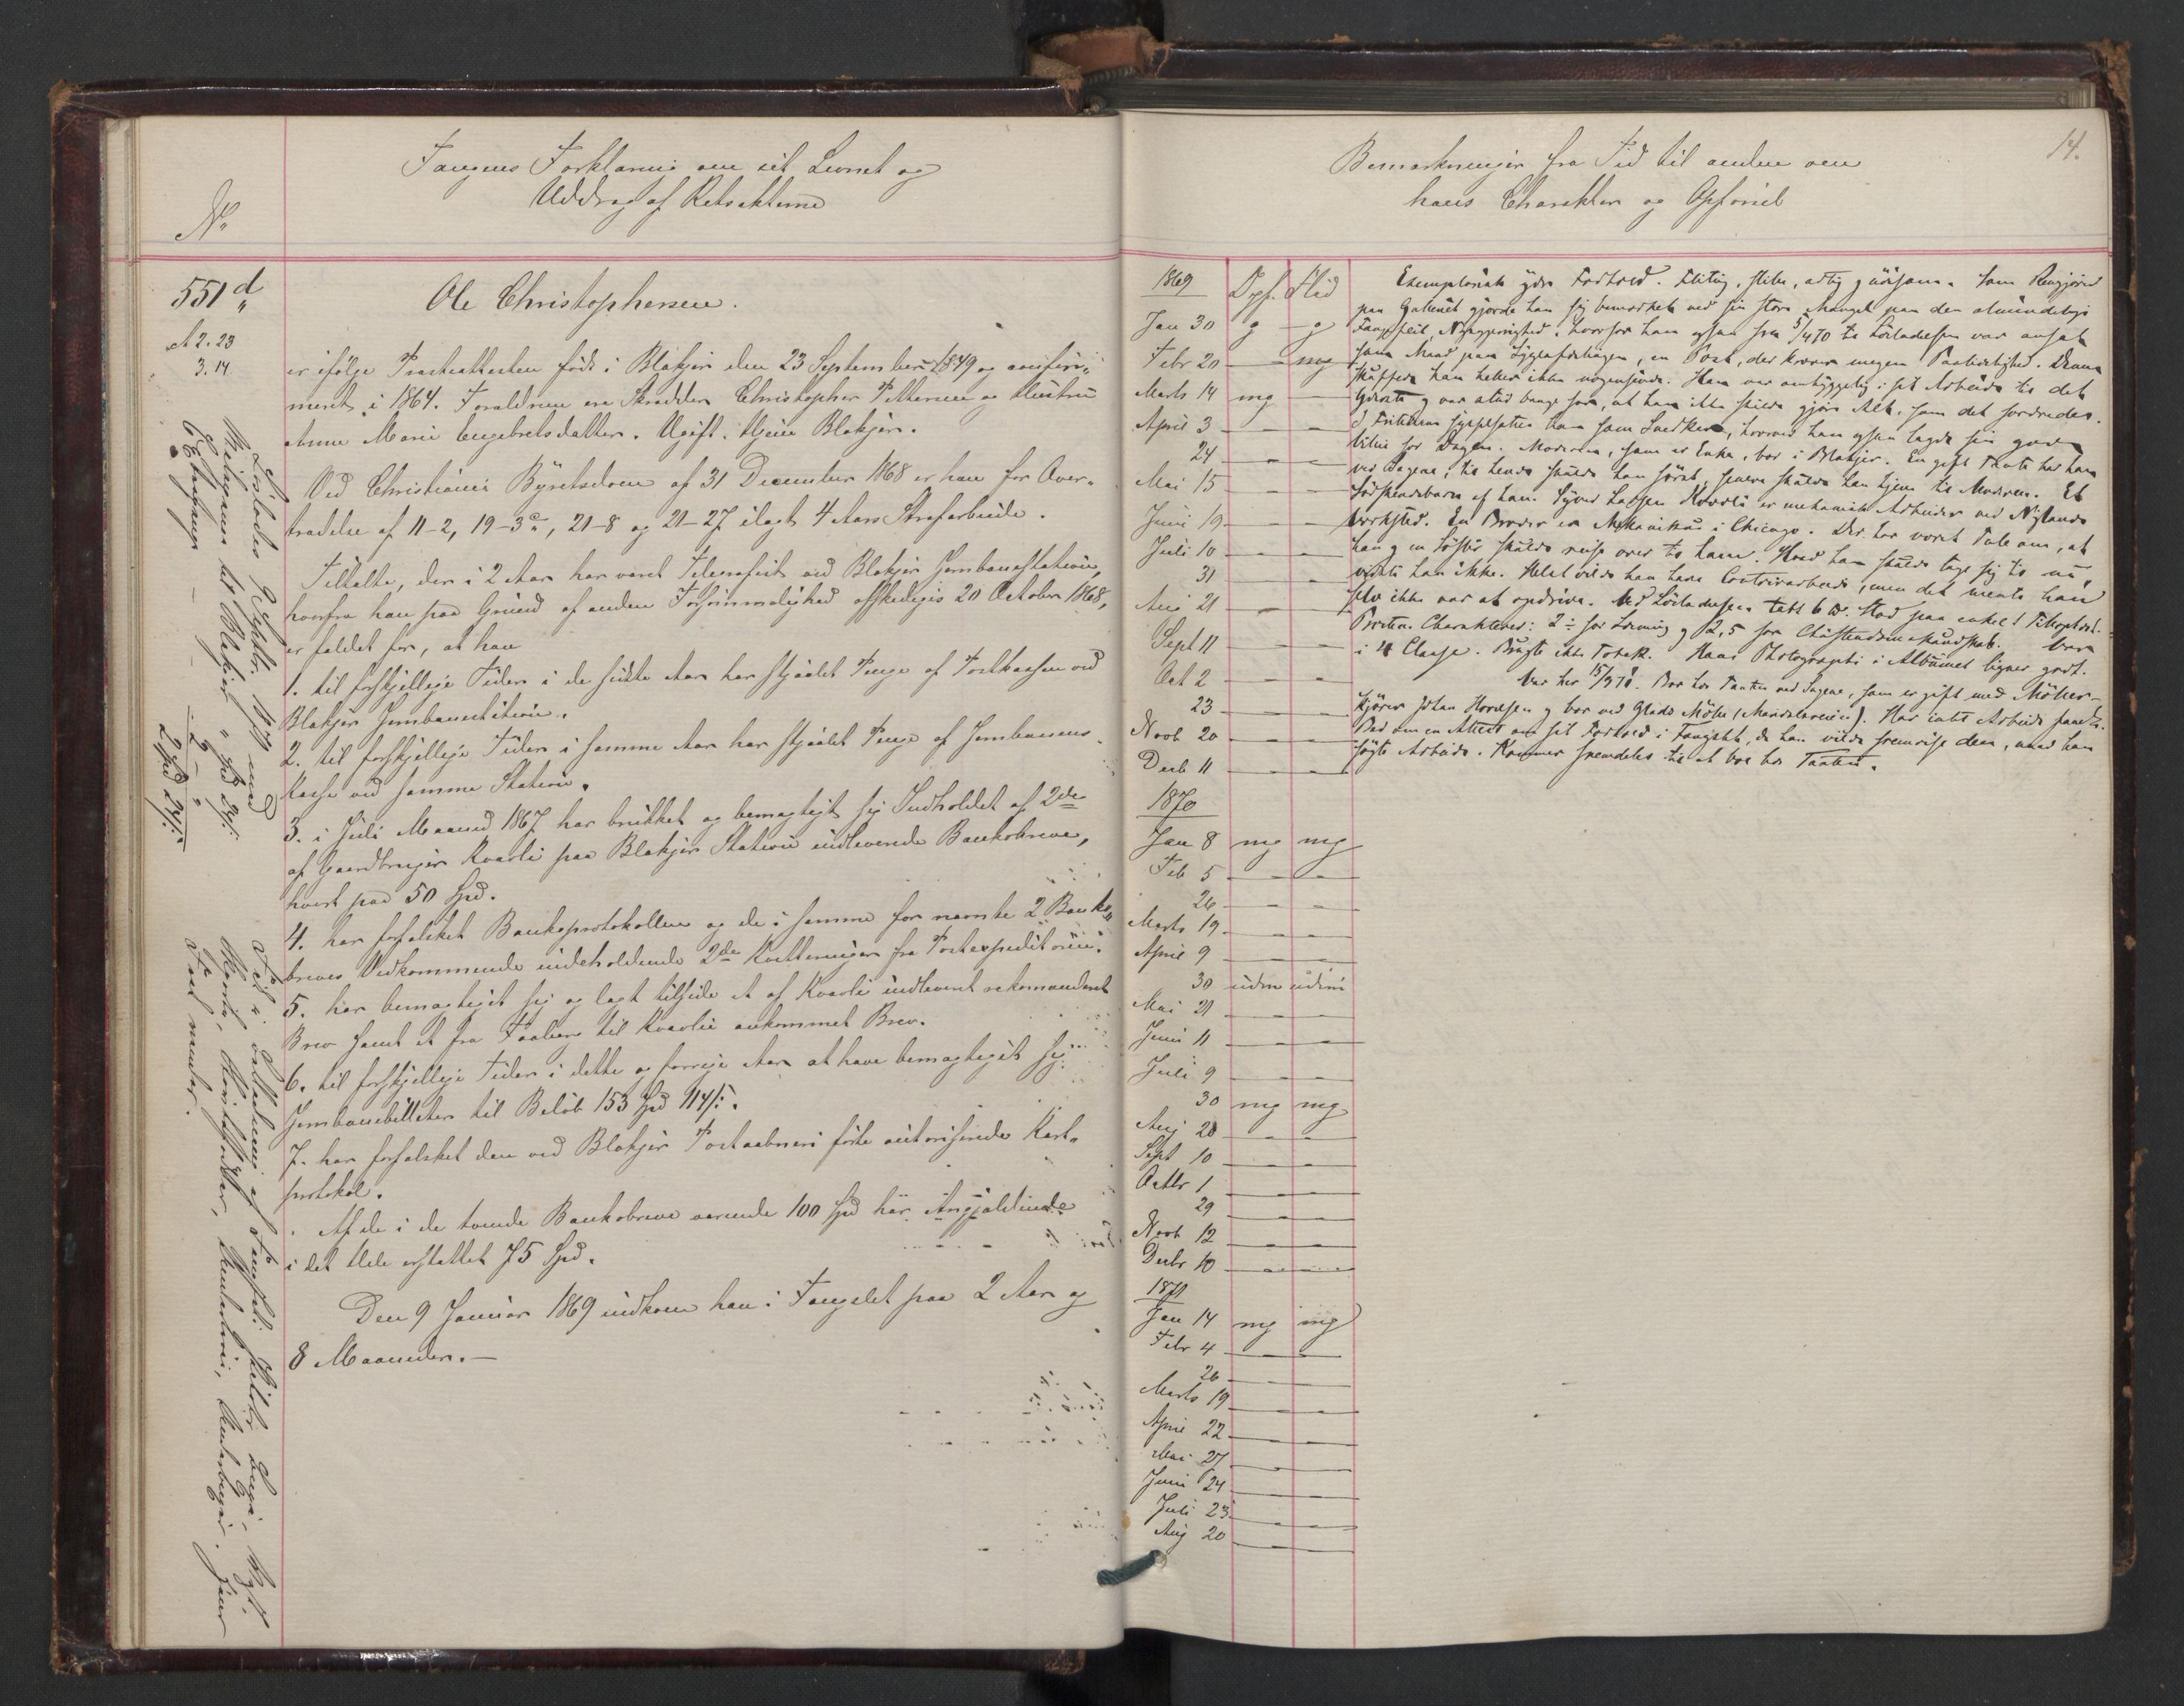 Fangens Forklaring om sit Levnet og
Uddrag af Retsakterne
No
551 d
A 2. 23
3. 14
Ole Christophersen.
er ifølge Præsteattesten født i Blakjer den 23 September 1849 og confir-
meret i 1864. Forældrene ere Skrædder Christopher Pettersen og Hustru
Anne Marie Engebretsdatter. Ugift. Hjem Blakjer.
Ved Christiania Byretsdom af 31 December 1868 er han for Over-
trædelse af 11-2, 19-3 c, 21-8 og 21-27 ilagt 4 Aars Strafarbeide.
Tiltalte, der i 2 Aar har været Telegrafist ved Blakjer Jernbanestation,
hvorfra han paa Grund af anden Forsømmelighed afskedigedes 20 October 1868,
er fældet for, at han
1. til forskjellige Tider i de sidste Aar har stjaalet Penge af Postkassen ved
Blakjer Jernbanestation.
2. til forskjellige Tider i samme Aar har stjaalet Penge af Jernbanens
Kasse ved samme Station.
3. i Juli Maaned 1867 har brukket og bemægtiget sig Indholdet af 2de
af Gaardbruger Kvarli paa Blakjer Station indleverede Bankobreve,
hvert paa 50 Spd.
4. har forfalsket Bankoprotokollen og de i samme for nævnte 2 Banko-
breves Vedkommende indeholdende 2de Kvitteringer fra Postexpeditionen.
5. har bemægtiget sig og lagt tilside et af Kvarli indleveret rekommanderet
Brev samt et fra Faaberg til Kvarli ankommet Brev.
6. til forskjellige Tider i dette og forrige Aar at have bemægtiget sig
Jernbanebilletter til Beløb 153 Spd 114 s.
7. har forfalsket den ved Blakjer Postaabneri førte autoriserede Kart-
protokol.
Af de i de tvende Bankobreve værende 100 Spd har Angjældende
i det Hele erstattet 75 Spd.
Den 9 Januar 1869 indkom han i Fængslet paa 2 Aar og
8 Maaneder.
Løslades 9 Septbr. 1871 med
til Blakjer
2 Spd 24 s.
Bemærkninger fra Tid til anden om
hans Charakter og Opførsel
14.
1869 Opf. Flid
Jan 30 g - g
Febr 20 — mg
Marts 14 mg —
April 3 — —
24 — —
Mai 15 — —
Juni 19 — —
Juli 10 — —
31 — —
Aug 21 — —
Sept 11 — —
Oct 2 — —
23 — —
Novb 20 — —
Decb 11 — —
1870
Jan 8 mg mg
Feb 5 — —
26 — —
Marts 19 — —
April 9 — —
30 udm udm
Mai 21 — —
Juni 11 — —
Juli 9 — —
30 mg mg
Aug 20 — —
Sept 10 — —
Octbr 1 — —
29 — —
Novb 12 — —
Decbr 10 — —
1871
Jan 14 mg mg
Febr 4 — —
26 — —
Marts 19 — —
April 22 — —
Mai 27 — —
Juni 24 — —
Juli 23 — —
Aug 20 — —
Exemplarisk ydre Forhold. Flittig, stille, artig og artsom. Som Rengjører
paa Galleriet gjorde han sig bemærket ved sin store Mangel paa den almindelige
Fangefeil, Nysgjerrighed, hvorfor han ogsaa fra 5/4 70 til Løsladelsen var ansat
som Mand paa Sygeafdelingen, en Post, der kræver megen Paalidelighed. Denne
skuffede han heller ikke nogensinde. Han var omhyggelig i sit Arbeide til det
Yderste og var altid bange for, at han ikke skulde gjøre Alt, som det fordredes.
I Fritiden sysselsatte han som Snedker, hvorved han ogsaa lagde sin gode
Villie for Dagen. Moderen, som er Enke, bor i Blakjer. En gift Tante har han
ved Sagene, til hende skulde han først, senere skulde han hjem til Moderen. Et
Sødskendebarn af ham Syver Larsen Kvarli er mekanisk Arbeider ved Nylands
Værksted. En Broder er Mekanikus i Chicago. Der har været Tale om, at
han og en Søster skulde reise over til ham. Hvad han skulde tage sig til nu,
vidste han ikke. Helst vilde han have Contoirarbeide, men det mente han
selv ikke var at opdrive. Ved Løsladelsen tabt 6 W.
Præsten Charakterer: 2÷ for Læsning og 2,5 for Christendomskundskab. Var
i 4 Classe. Brugte ikke Tobak. Hans Photographi i Albumet ligner godt.
Var her 15/9 71. Bor hos Tanten ved Sagene, som er gift med Møller-
kjører Johan Hansen og bor ved Glads Mølle (Maridalsveien). Har intet Arbeide faaet.
Bad om en Attest om sit Forhold i Fængslet, da han vilde fremvise den, naar han
søgte Arbeide. Kommer fremdeles til at bo hos Tanten.